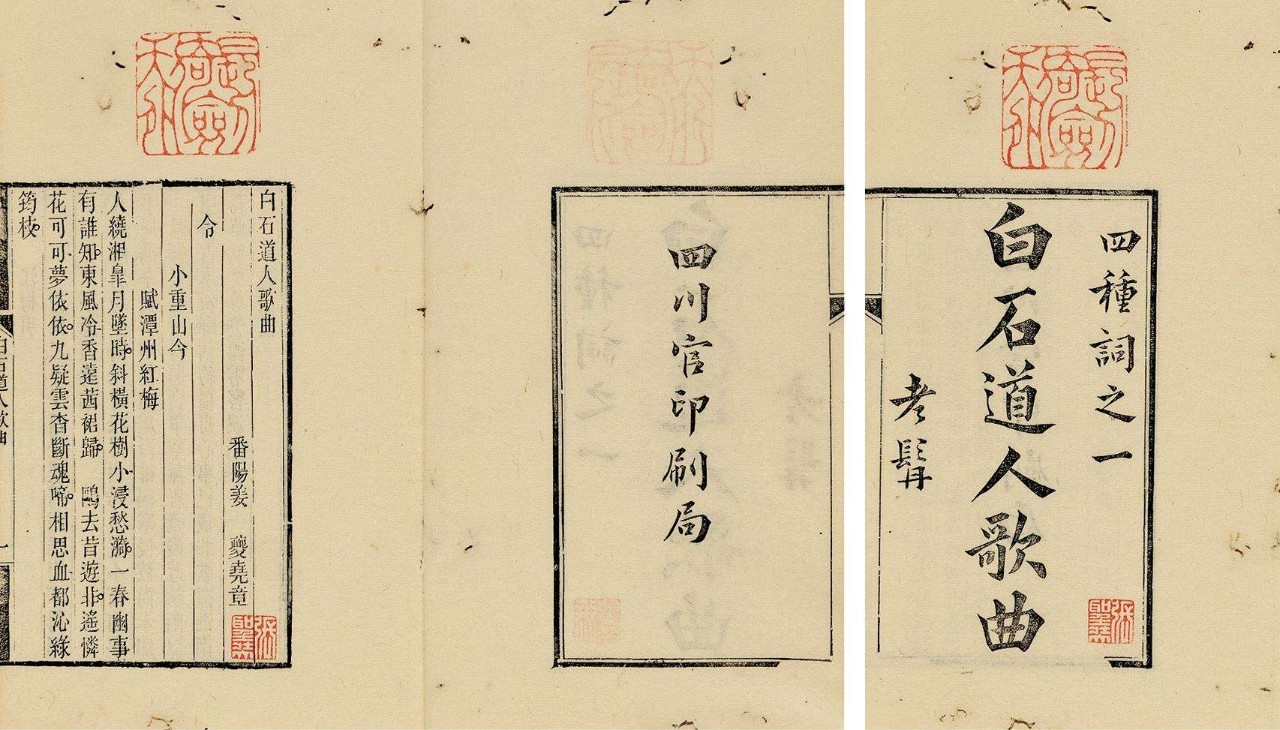 四種詞之一
白石道人歌曲
老髯
四川官印刷局
白石道人歌曲
番陽姜　夔堯章
令
小重山今
賦潭州紅梅
人繞湘皐月墜時。斜橫花樹小浸愁漪。一春幽事
有誰知。東風冷香遠茜裙歸。　鷗去昔遊非。遙憐
花可可夢依依。九疑雲杳斷魂啼。相思血都沁綠
筠枝。
白石道人歌曲
一